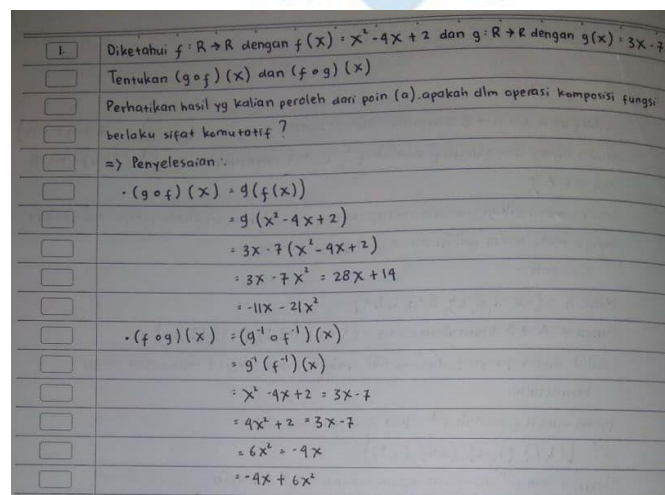 1. Diketahui f : R → R dengan f(x) = x² - 4x + 2 dan g : R → R dengan g(x) = 3x - 7
Tentukan (g o f) (x) dan (f o g) (x)
Perhatikan hasil yg kalian peroleh dari poin (a). apakah dlm operasi komposisi fungsi
berlaku sifat komutatif ?
=> Penyelesaian :
• (g o f) (x) = g(f(x))
= g (x² - 4x + 2)
= 3x - 7 (x² - 4x + 2)
= 3x - 7x² = 28x + 14
= -11x - 21x²
• (f o g) (x) = (g⁻¹ o f⁻¹) (x)
= g¹ (f⁻¹) (x)
= x² - 4x + 2 = 3x - 7
= 4x² + 2 = 3x - 7
= 6x² = -4x
= -4x + 6x²